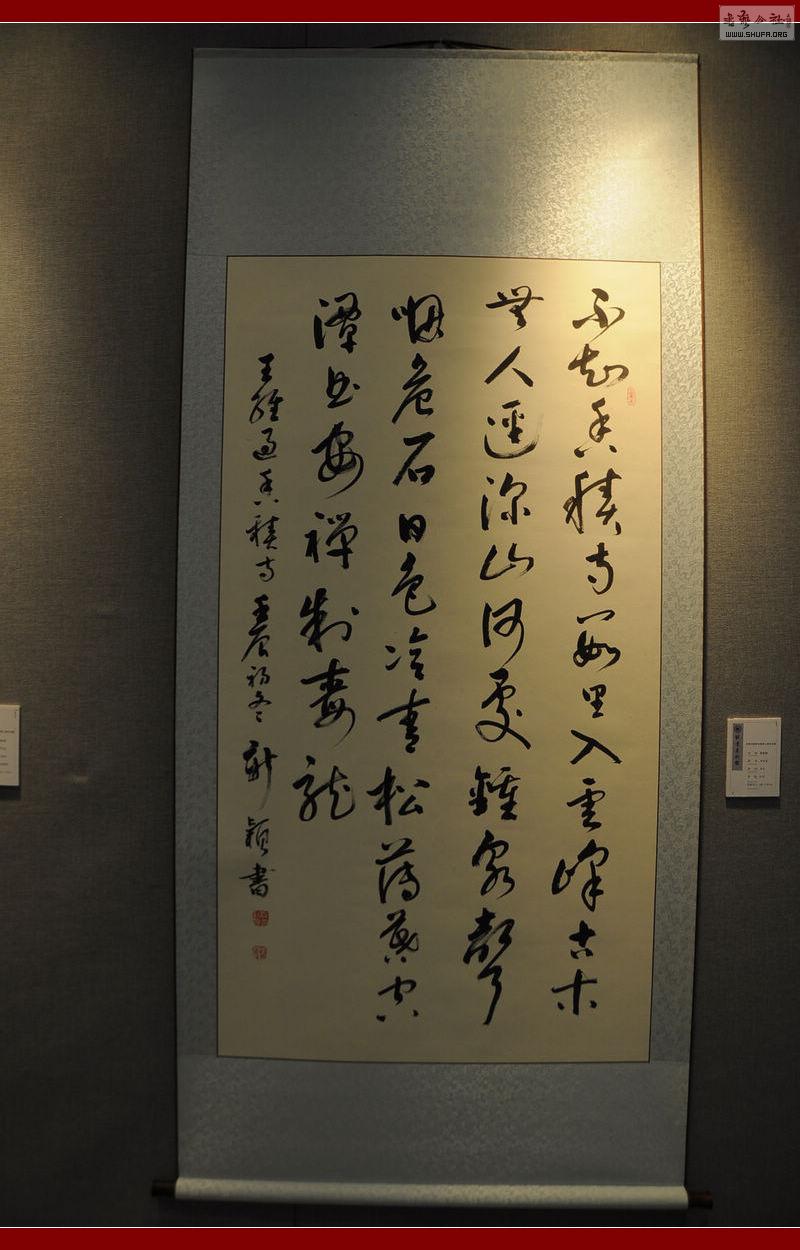 不知香積寺數里入雲峰古木
無人逕深山何處鐘泉聲
咽危石日色冷青松薄暮空
潭曲安禪制毒龍
王維過香積寺壬辰初冬穎書
書藝公社
WWW.SHUFA.ORG